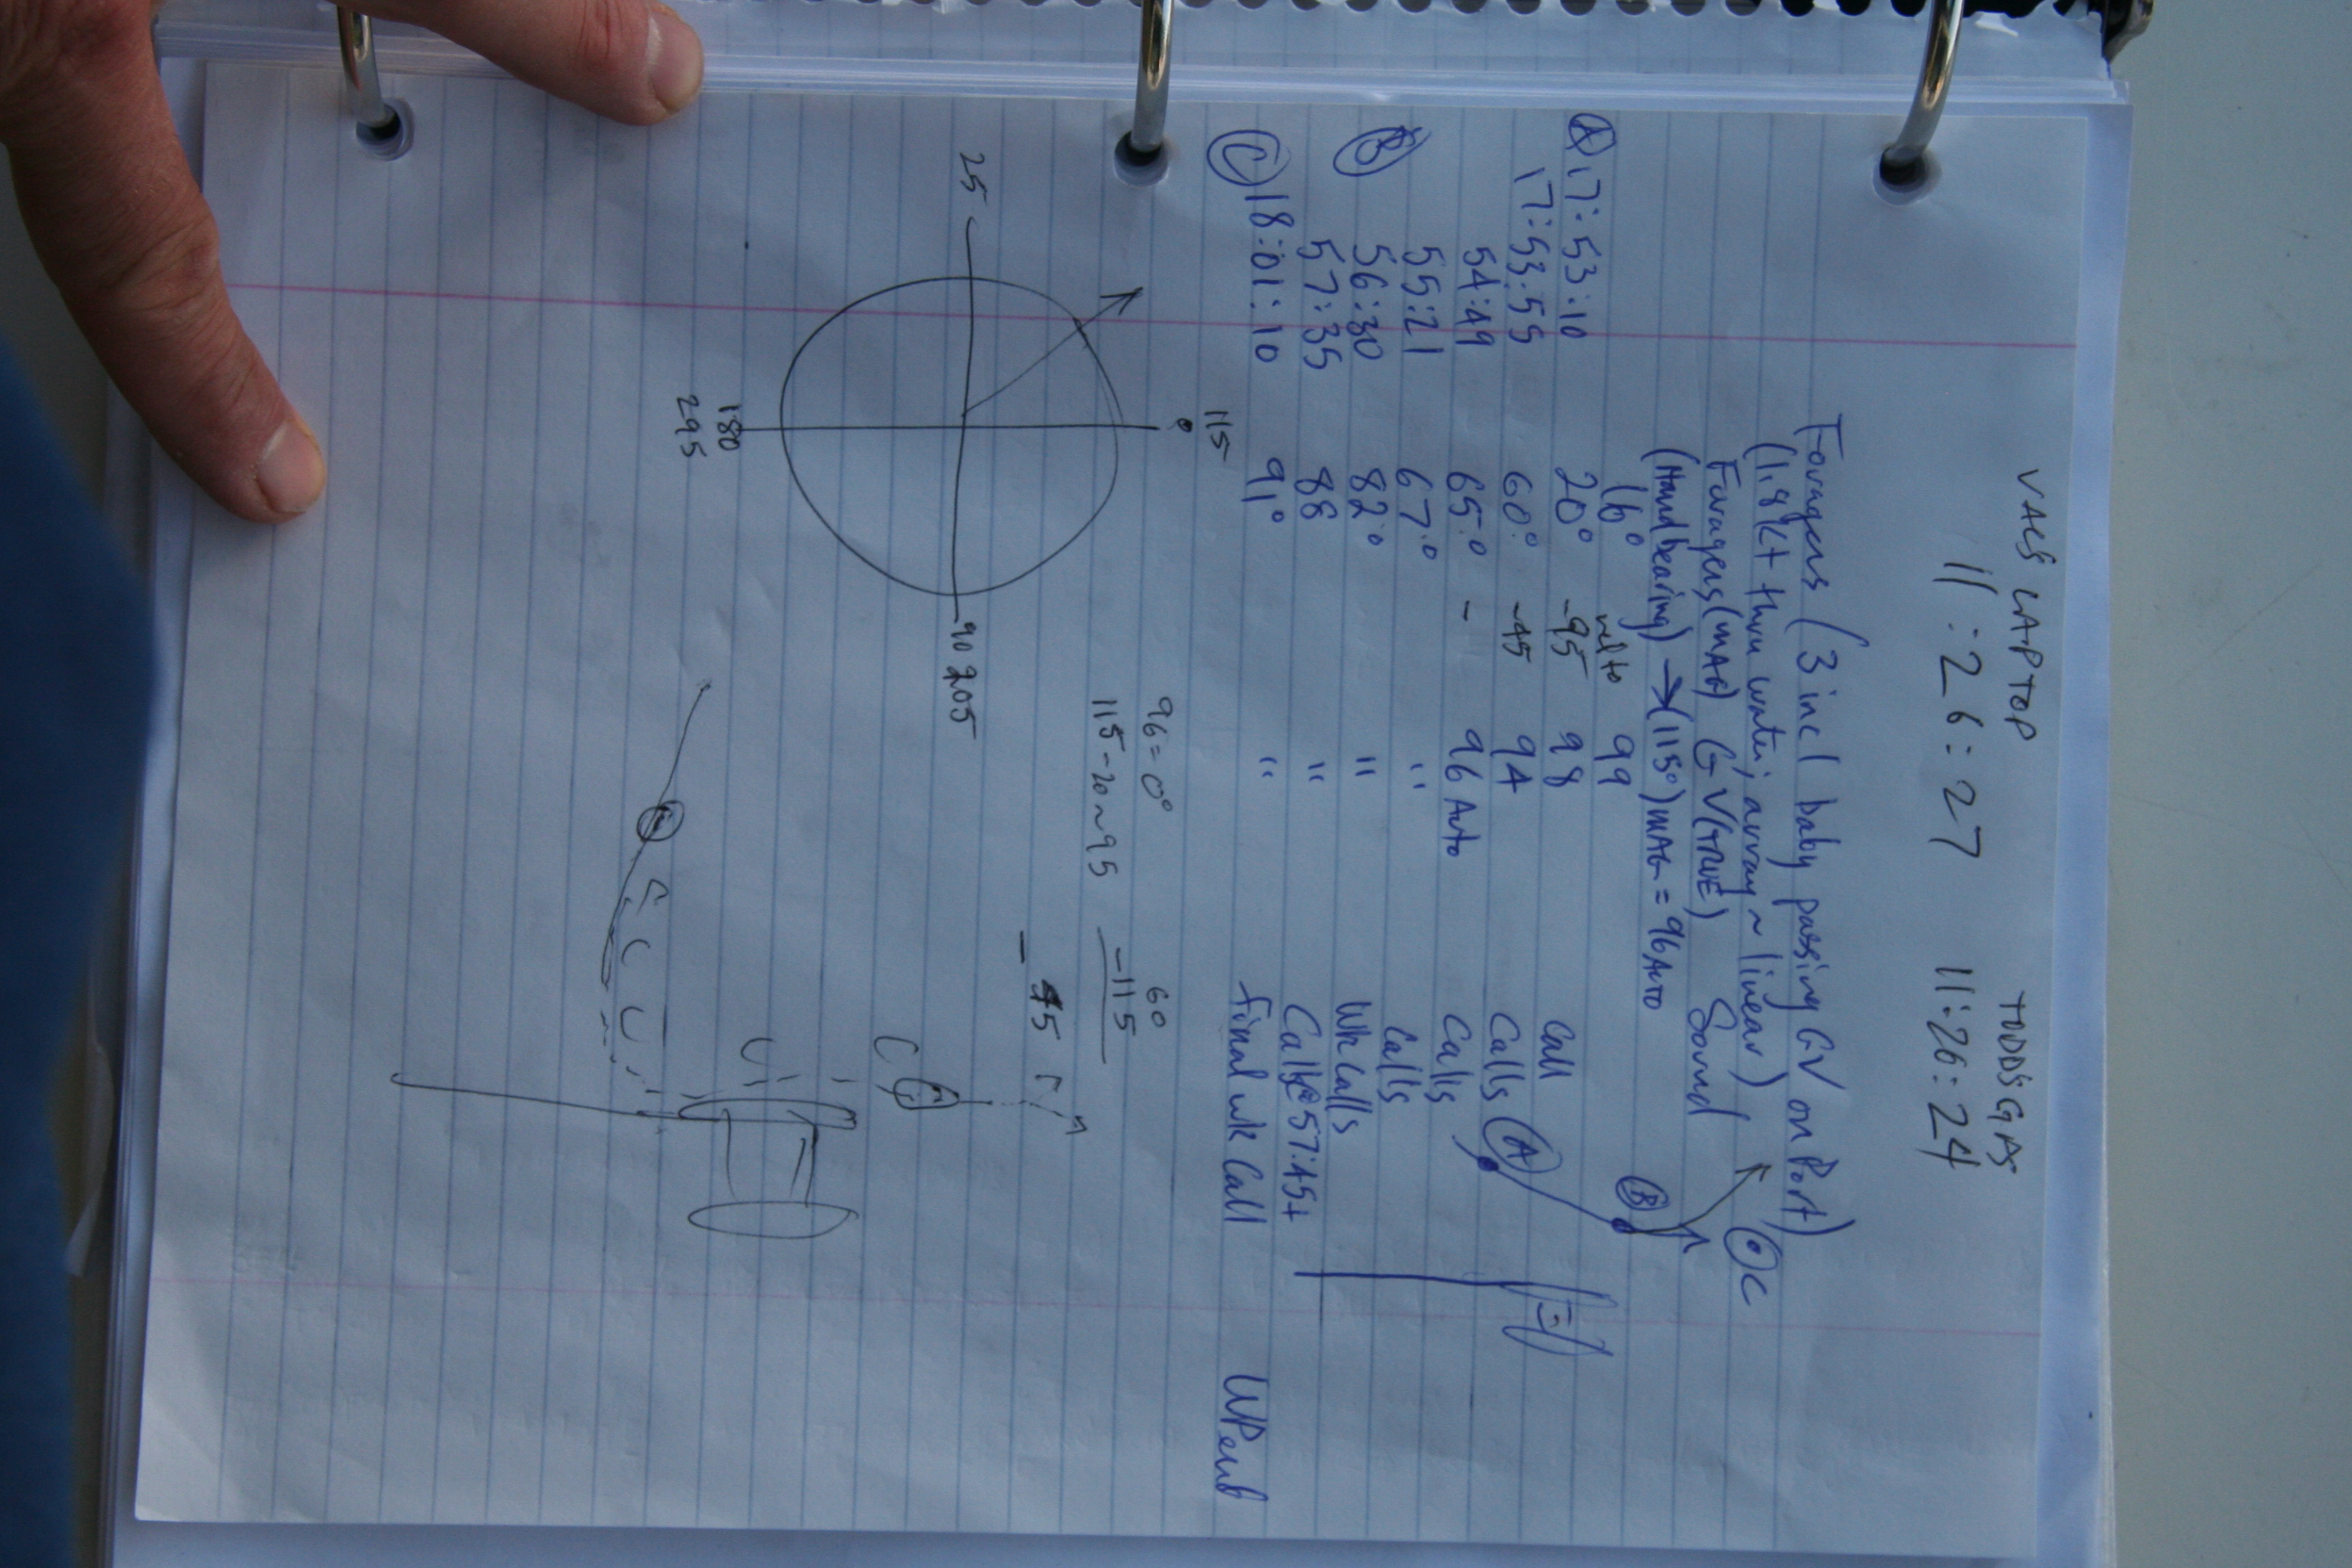 VALS LAPTOP TODD'S GPS
11:26:27 11:26:24
Foragers (3 incl baby passing GV on Port)
(1.8kt thru water; array ~ linear)
Foragers (MAG) GV (TRUE) Sound
(Hand bearing) → (115°) MAG = 96 Auto
16° rel to 99
A 17:53:10 20° -95 98 Call
17:53:55 60° -45 94 Calls A
54:49 65° - 96 Auto Calls
55:21 67° " Calls
B 56:30 82° " Wk Calls
57:35 88 " Calls @ 57:45+
C 18:01:10 91° " final wk Call WP end
B
C
115
96 = 0°
60
115-20~95
-115
-45
25
90 205
180
295